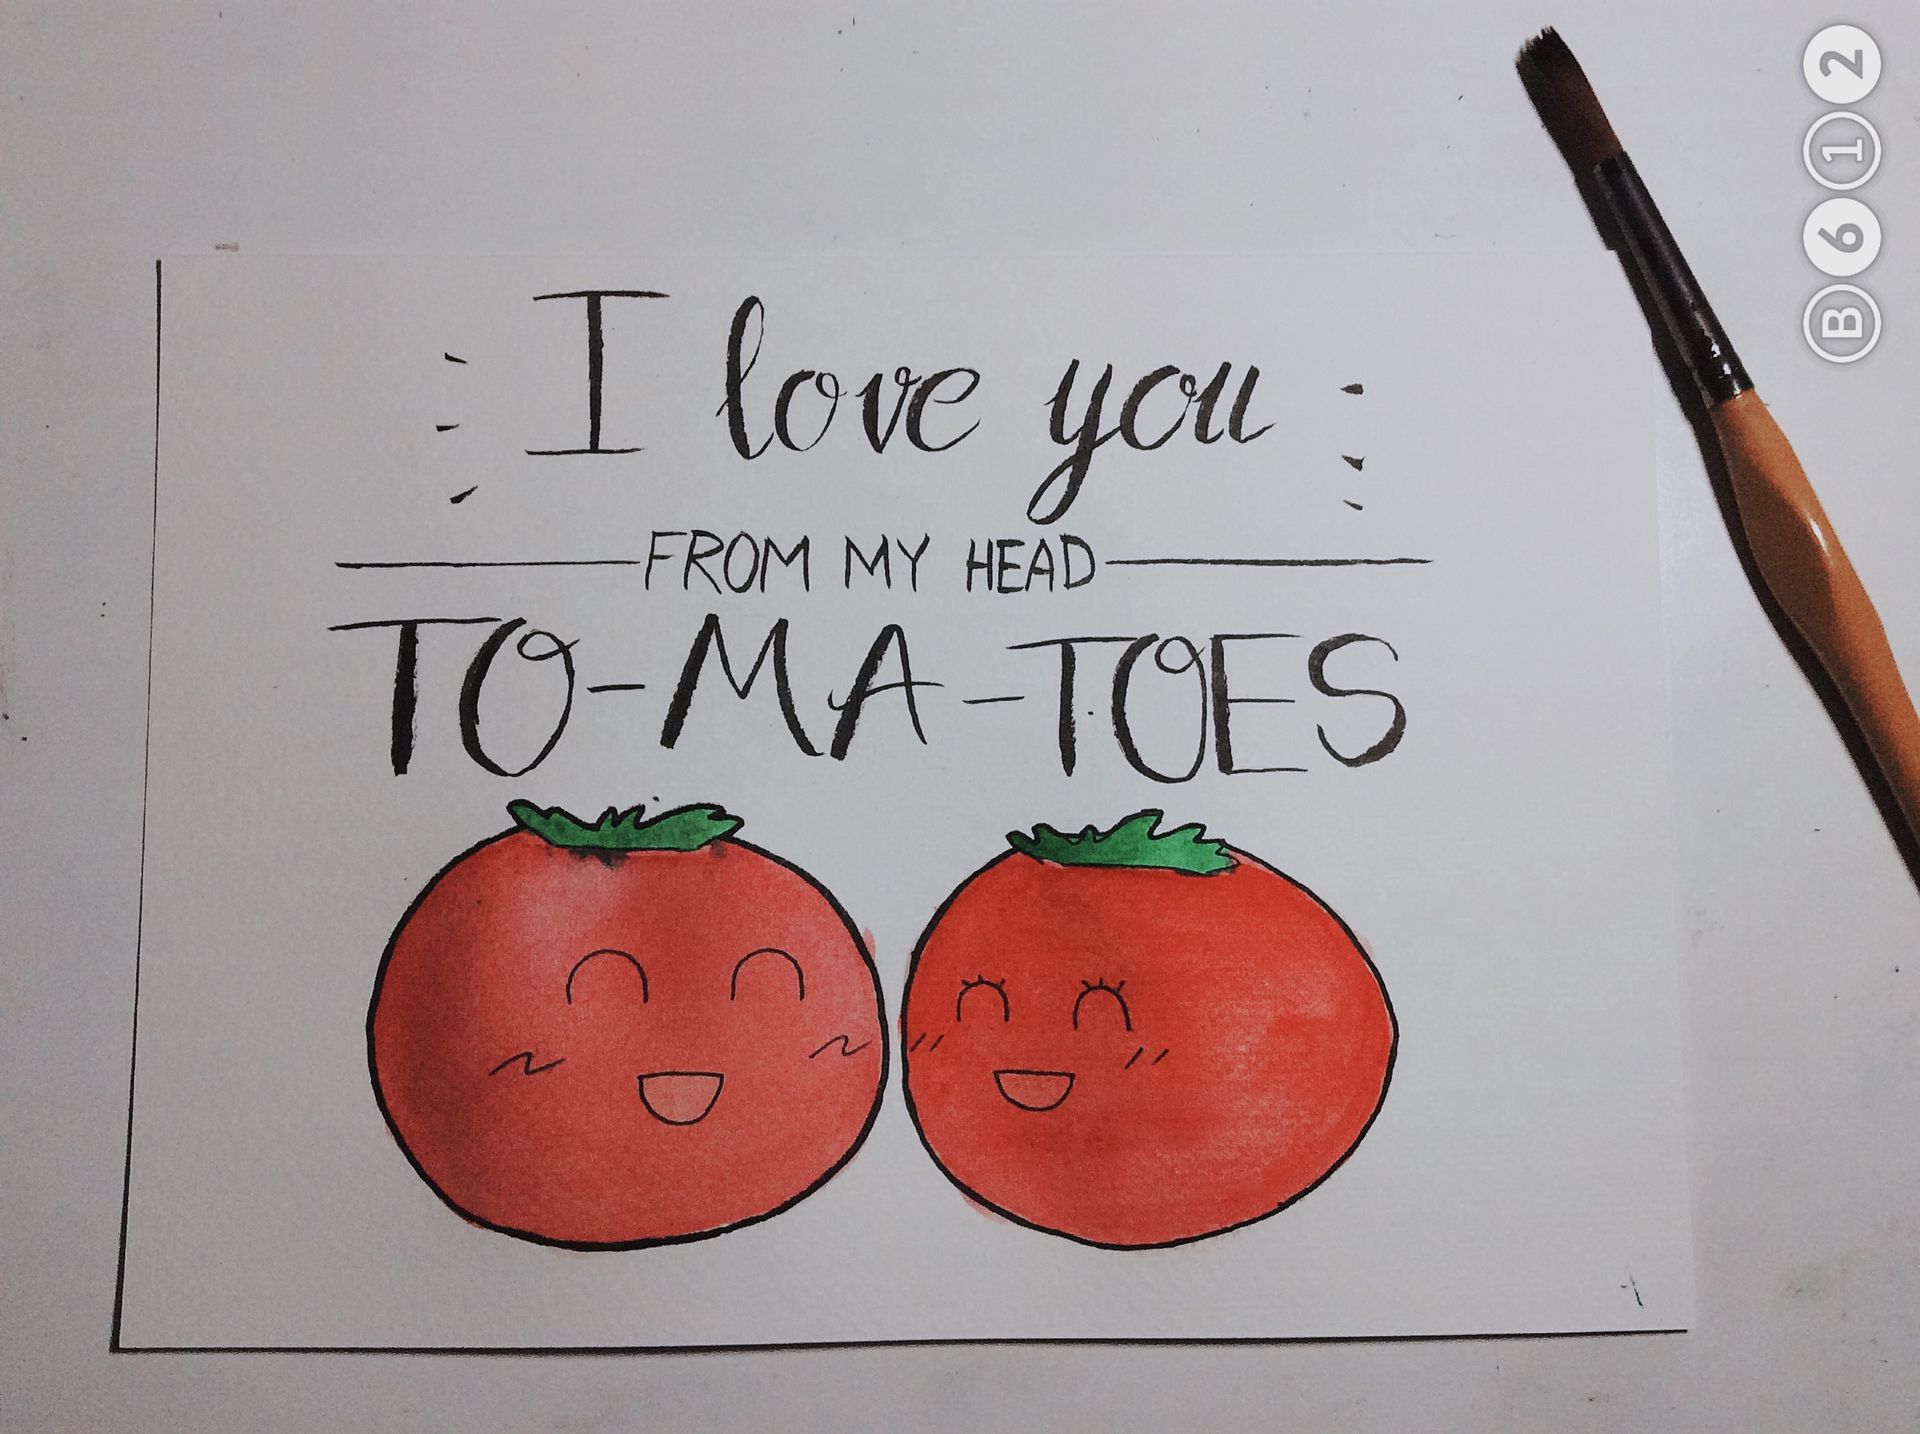 I love you
FROM MY HEAD
TO-MA-TOES
B612